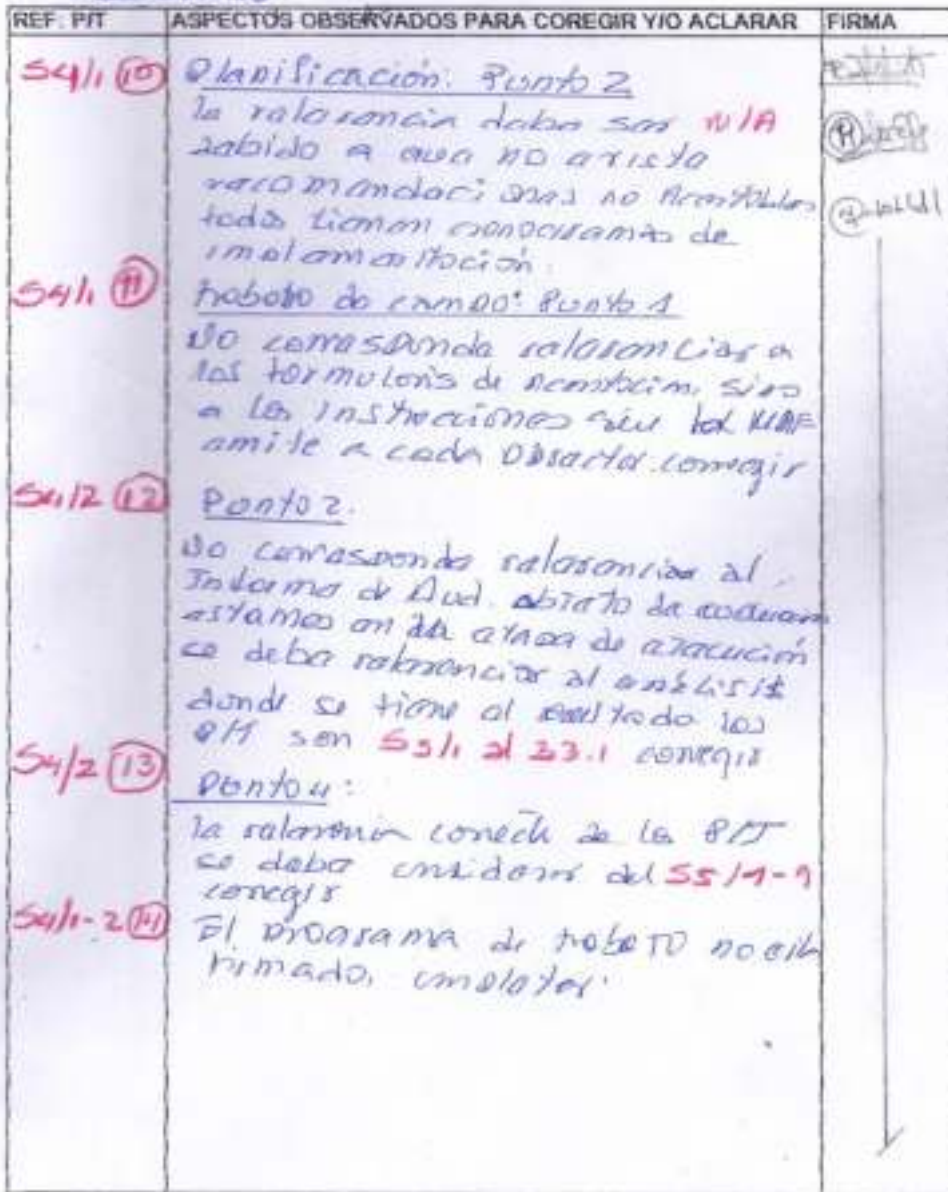 REF: P/T ASPECTOS OBSERVADOS PARA COREGIR Y/O ACLARAR FIRMA
S4/1 10 Planificación. Punto 2
la referencia debe ser N/A
debido a que no existe
recomendaciones no Aceptables
todas tienen cronogramas de
implementación.
S4/1 11 Trabajo de campo: Punto 1
No corresponde referenciar a
los formularios de Aceptación, sino
a las Instrucciones que
emite a cada Director. corregir
S4/2 12 Punto 2.
No corresponde referenciar al
Informe de Aud. objeto de
estamos en la etapa de ejecución
se debe referenciar al análisis
donde se tiene el resultado los
P/T son S3/1 al 33.1 corregir
S4/2 13 Punto 4:
la referencia correcta de la P/T
se debe considerar del S5/1-9
corregir
S4/1-2 14 El programa de trabajo no está
firmado, completar.